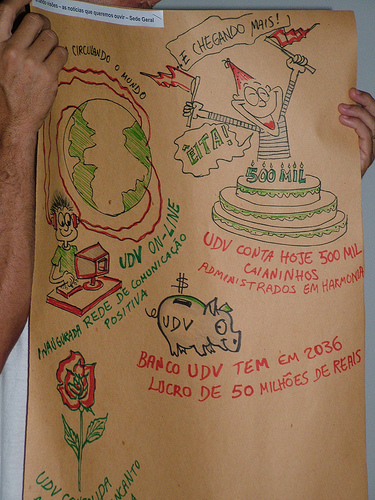 visões – as notícias que queremos ouvir – Sede Geral
CIRCULANDO O MUNDO
E CHEGANDO MAIS!
ÊITA!
500 MIL
UDV ON-LINE
INAUGURADA REDE DE COMUNICAÇÃO
POSITIVA
UDV CONTA HOJE 500 MIL
CAIANINHOS
ADMINISTRADOS EM HARMONIA
$
UDV
BANCO UDV TEM EM 2036
LUCRO DE 50 MILHÕES DE REAIS
UDV